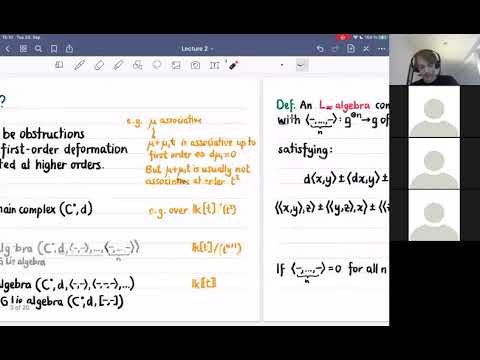 15:10 Tue 20. Sep
100 %
Lecture 2
?
be obstructions
first-order deformation
ted at higher orders.
e.g. μ associative
μ+μ₁t is associative up to
first order ⇔ dμ₁=0
But μ+μ₁t is usually not
associative at order t²
main complex (C•,d)
e.g. over lk[t]/(t²)
algebra (C•,d,⟨-,-⟩,...,⟨-,...,-⟩)
n
lk[t]/(tⁿ⁺¹)
G Lie algebra
algebra (C•,d,⟨-,-⟩,⟨-,-,-⟩,...)
lk⟦t⟧
G Lie algebra (C•,d,[-,-])
3 of 20
Def: An L∞ algebra con
with ⟨-,...,-⟩: g⊗ⁿ→g of
n
satisfying:
d⟨x,y⟩ ± ⟨dx,y⟩ ±
⟨⟨x,y⟩,z⟩ ± ⟨⟨y,z⟩,x⟩ ± ⟨⟨
If ⟨-,...,-⟩ = 0 for all n
n